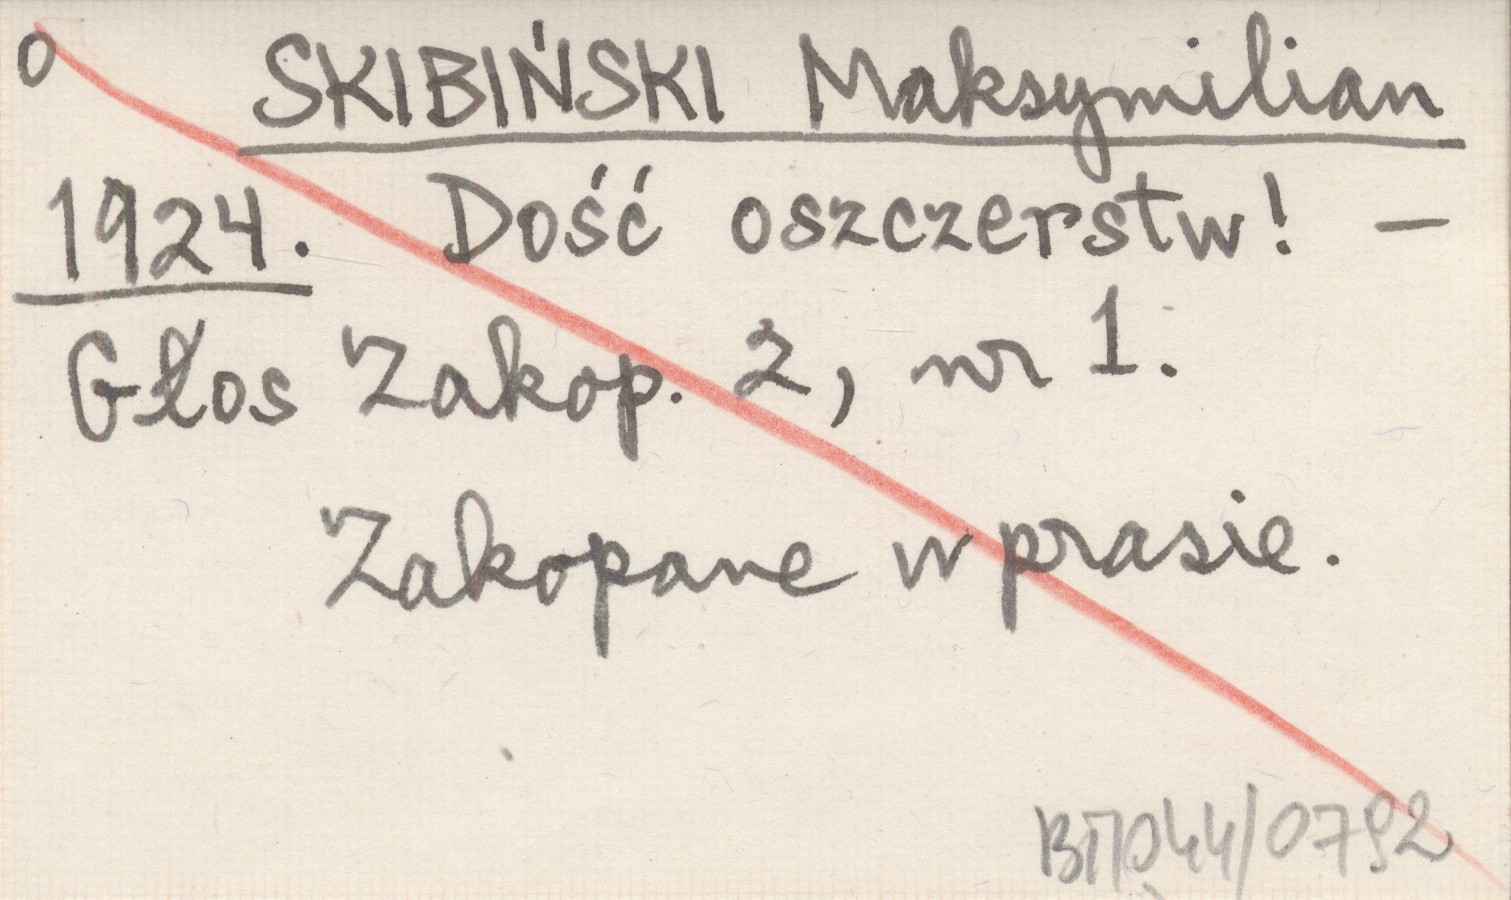 o SKIBIŃSKI Maksymilian
1924. Dość oszczerstw! —
Głos Zakop. 2, nr 1.
Zakopane w prasie.